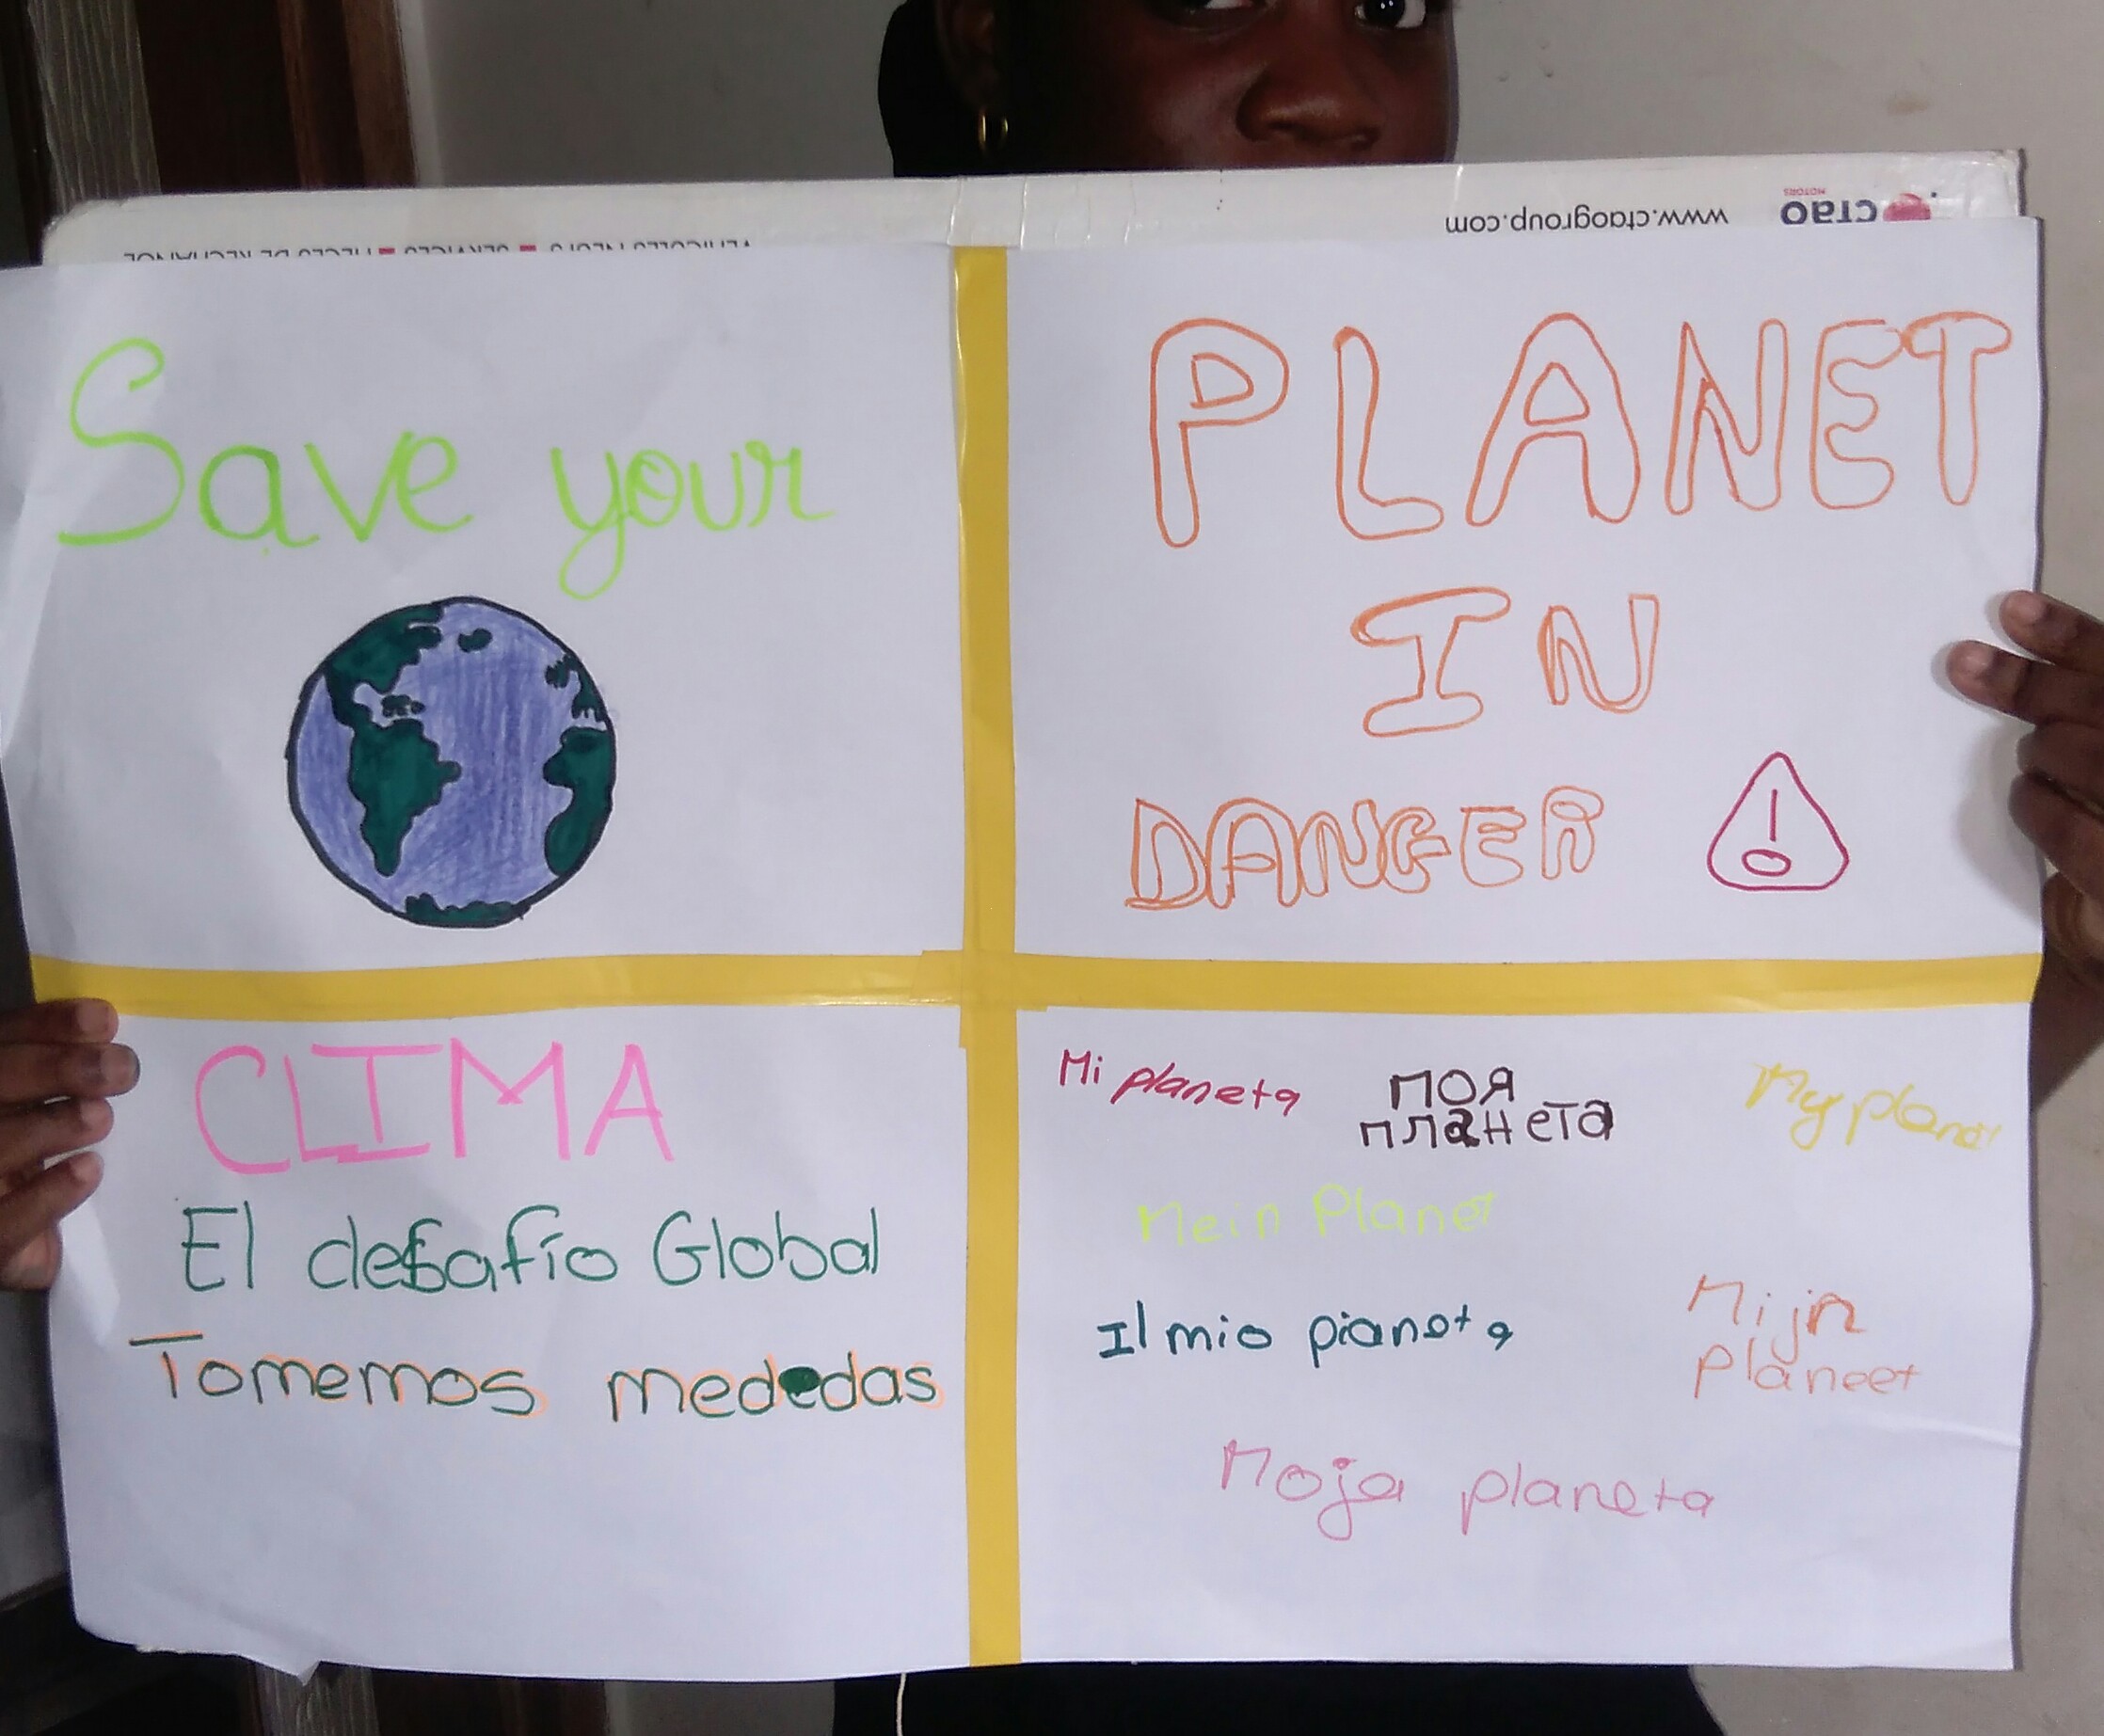 www.ctaogroup.com
ctao
MOTORS
Save your
PLANET
IN
DANGER
!
CLIMA
El desafío Global
Tomemos mededas
Mi planeta
моя
планета
My planet
Mein Planet
Il mio pianeta
Mijn
planeet
Moja planeta